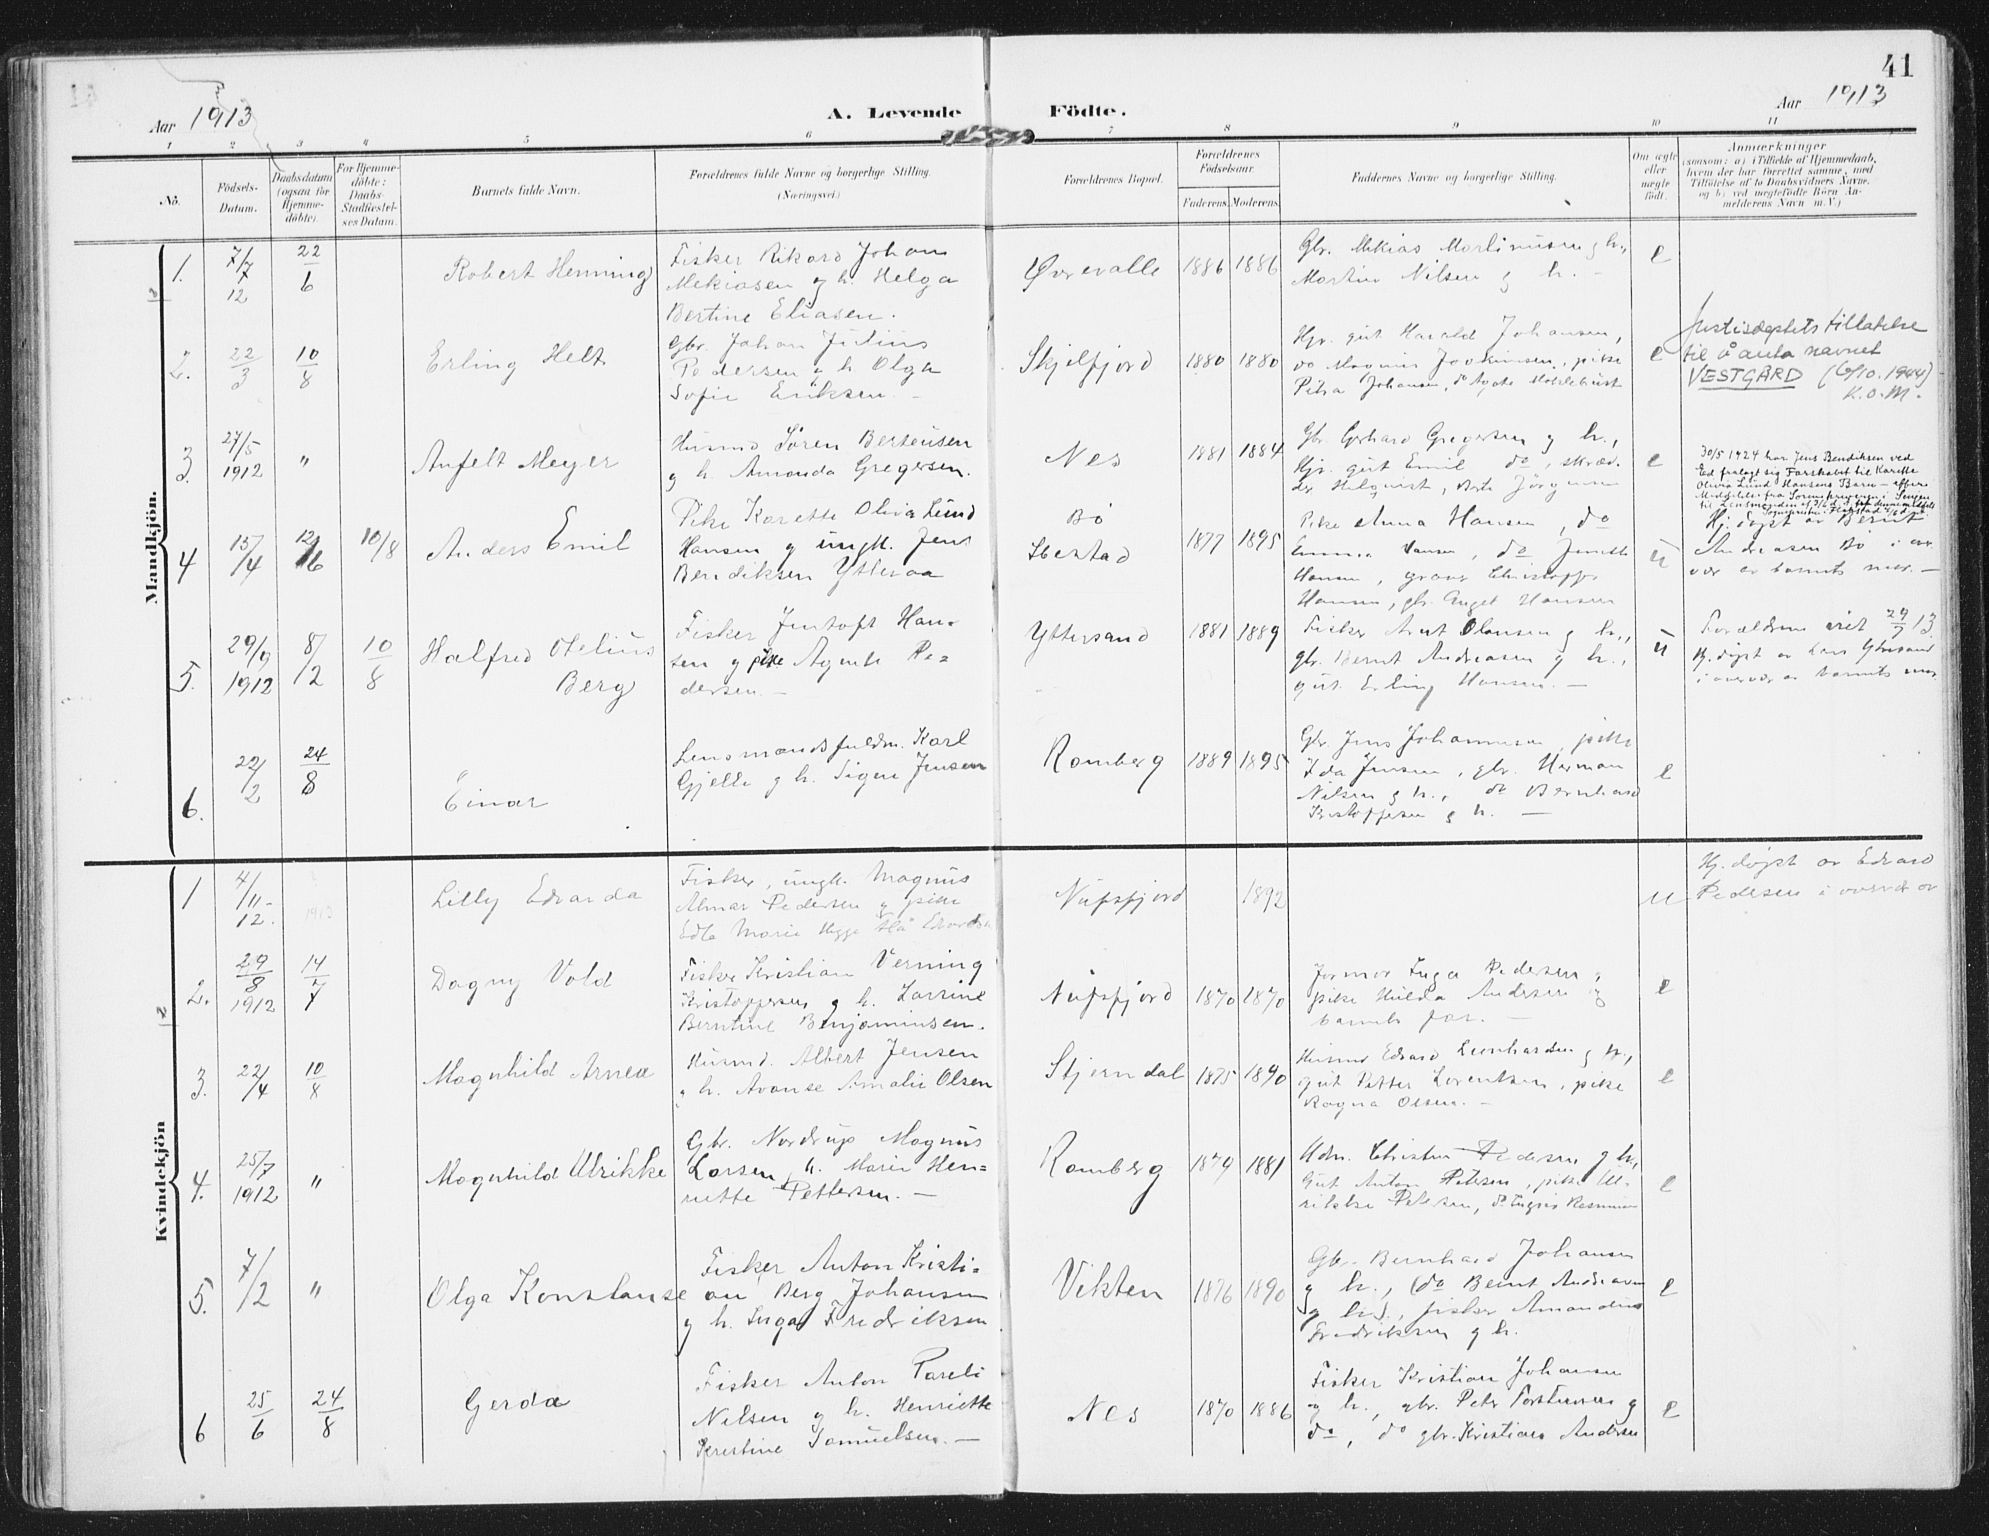 41
Aar 1913
A. Levende Födte.
Aar 1913
1 2 3 4 5 6 7 8 9 10 11
No.
Födsels-
Datum.
Daabsdatum
(ogsaa for
Hjemme-
döbte).
For Hjemme-
döbte:
Daabs
Stadfæstel-
ses Datum.
Barnets fulde Navn.
Forældrenes fulde Navne og borgerlige Stilling.
(Næringsvei.)
Forældrenes Bopæl.
Forældrenes
Födselsaar.
Faderens. Moderens.
Faddernes Navne og borgerlige Stilling.
Om ægte
eller
uægte
født.
Anmærkninger
(saasom: a) i Tilfælde af Hjemmedaab,
hvem der har forrettet samme, med
Tilføielse af to Daabsvidners Navne,
og b) ved uægtefødte Börn An-
melderens Navn m. V.)
Mandkjön.
1. 7/7 12
22/6
Robert Henning
Fisker Rikard Johan
Mekiasen og h. Helga
Bertine Eliasen.
1886 1886
Gbr. Mekias Martinusen og h.,
Martin Nilsen og h. –
e
2. 22/3
10/8
Erling Helt
Gbr. Johan Julius
Pedersen og h. Olga
Sofie Eriksen. –
Skjelfjord
1880 1880
gut Harald Johansen,
do Magnus Joakimsen, pike
Petra Johansen, do Agate
e
Justisdeptets tillatelse
til å anta navnet
VESTGÅRD (6/10. 1944)
K.O.M.
3. 27/5 1912
"
Anfelt Meyer
Husmd Sören Berteusen
og h. Amanda Gregersen.
Nes
1881 1884
Gbr. Gerhard Gregersen og h.,
gut Emil do,
e
30/5 1924 har Jens Bendiksen ved
Ed fralagt sig Farskabet til Karette
Olivia Lund Hansens Barn –
4 15/4
12/6
10/8
Anders Emil
Pike Karette Oliva Lund
Hansen og ungk. Jens
Bendiksen Ytteraa
Bö
Ibestad
1877 1895
Pike Anna Hansen, do
Emma Hansen, do
Hansen,
Hansen, gbr. Hansen
u
Hj. døpt av Bernt
Andreasen Bö i over
vær av barnets mor. –
5. 29/9 1912
8/12
10/8
Halfred Otelius
Berg
Fisker Jentoft Han-
sen og pike Agnete Pe-
dersen. –
Yttersand
1881 1889
Fisker Arnt Olausen og h.,
gbr. Bernt Andreasen og h.,
gut Erling Hansen. –
u
Forældrene viet 29/7 13.
Hj. døpt av Lars
i overvær av barnets mor
6. 22/2
24/8
Einar
Lensmandsfuldm. Karl
Gjelle og h. Signe Jensen
Ramberg
1889 1895
Gbr. Jens Johannesen, pike
Ida Jensen, gbr. Herman
Nilsen og h., do Bernhard
Kristoffersen og h. –
e
Kvindekjön
1 4/11- 12.
1913
Lilly Edvarda
Fisker, ungk. Magnus
Almar Pedersen og pike
Edle Marie
Nufsfjord
1892
u
Hj. døpt av Edvard
Pedersen i overvær av
2. 29/8 1912
14/7
Dagny Vold
Fisker Kristian Verning
Kristoffersen og h. Larsine
Berntine Benjaminsen.
Nufsfjord
1870 1870
Jormor Inga Pedersen,
pike Hilda Andersen og
barnets far. –
e
3. 22/4
10/8
Magnhild Arnea
Husmd. Albert Jensen
og h. Avanse Amalie Olsen
Stjerndal
1875 1890
Husmd Edvard Leonhardsen og h.,
gut Petter Lorentsen, pike
Ragna Olsen. –
e
4. 25/7 1912
"
Magnhild Ulrikke
Gbr. Nordrup Magnus
Larsen, h. Marie Hen=
riette Pettersen. –
Ramberg
1879 1881
Christen Pedersen og h.,
Gut Anton Petersen, pike Ul-
rikke Petersen, do
e
5. 7/2
"
Olga Konstanse
Fisker Anton Kristi=
an Berg Johansen
og h. Inga Fredriksen
Vikten
1876 1890
Gbr. Bernhard Johansen
og h., (do Bernt Andreasen
og h.), fisker Amandus
Fredriksen og h.
e
6 25/6
24/8
Gerda
Fisker Anton Pareli
Nilsen og h. Henriette
Kristine Samuelsen. –
Nes
1870 1886
Fisker Kristian Johansen
og h., gbr. Peter og
do, do gbr. Kristian Andersen
e